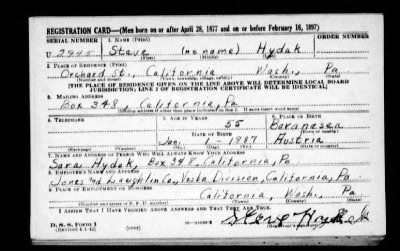 REGISTRATION CARD—(Men born on or after April 28, 1877 and on or before February 16, 1897)
SERIAL NUMBER 1. NAME (Print) ORDER NUMBER
U Steve (no name) Hydak
(First) (Middle) (Last)
2. PLACE OF RESIDENCE (Print)
Orchard St., California Wash., Pa
(Number and street) (Town, township, village, or city) (County) (State)
[THE PLACE OF RESIDENCE GIVEN ON THE LINE ABOVE WILL DETERMINE LOCAL BOARD
JURISDICTION; LINE 2 OF REGISTRATION CERTIFICATE WILL BE IDENTICAL]
3. MAILING ADDRESS
Box 348, California, Pa
[Mailing address if other than place indicated on line 2. If same insert word same]
4. TELEPHONE 5. AGE IN YEARS 6. PLACE OF BIRTH
55
DATE OF BIRTH
Jan. 1 - 1887 Austria
(Exchange) (Number) (Mo.) (Day) (Yr.) (State or country)
7. NAME AND ADDRESS OF PERSON WHO WILL ALWAYS KNOW YOUR ADDRESS
Sara Hydak, Box 348, California, Pa
8. EMPLOYER'S NAME AND ADDRESS
Jones and Laughlin Co., Vesta Division, California, Pa
9. PLACE OF EMPLOYMENT OR BUSINESS
California, Wash., Pa
(Number and street or R. F. D. number) (Town) (County) (State)
I AFFIRM THAT I HAVE VERIFIED ABOVE ANSWERS AND THAT THEY ARE TRUE.
D. S. S. Form 1
(Revised 4-1-42) (over)
Steve Hydak